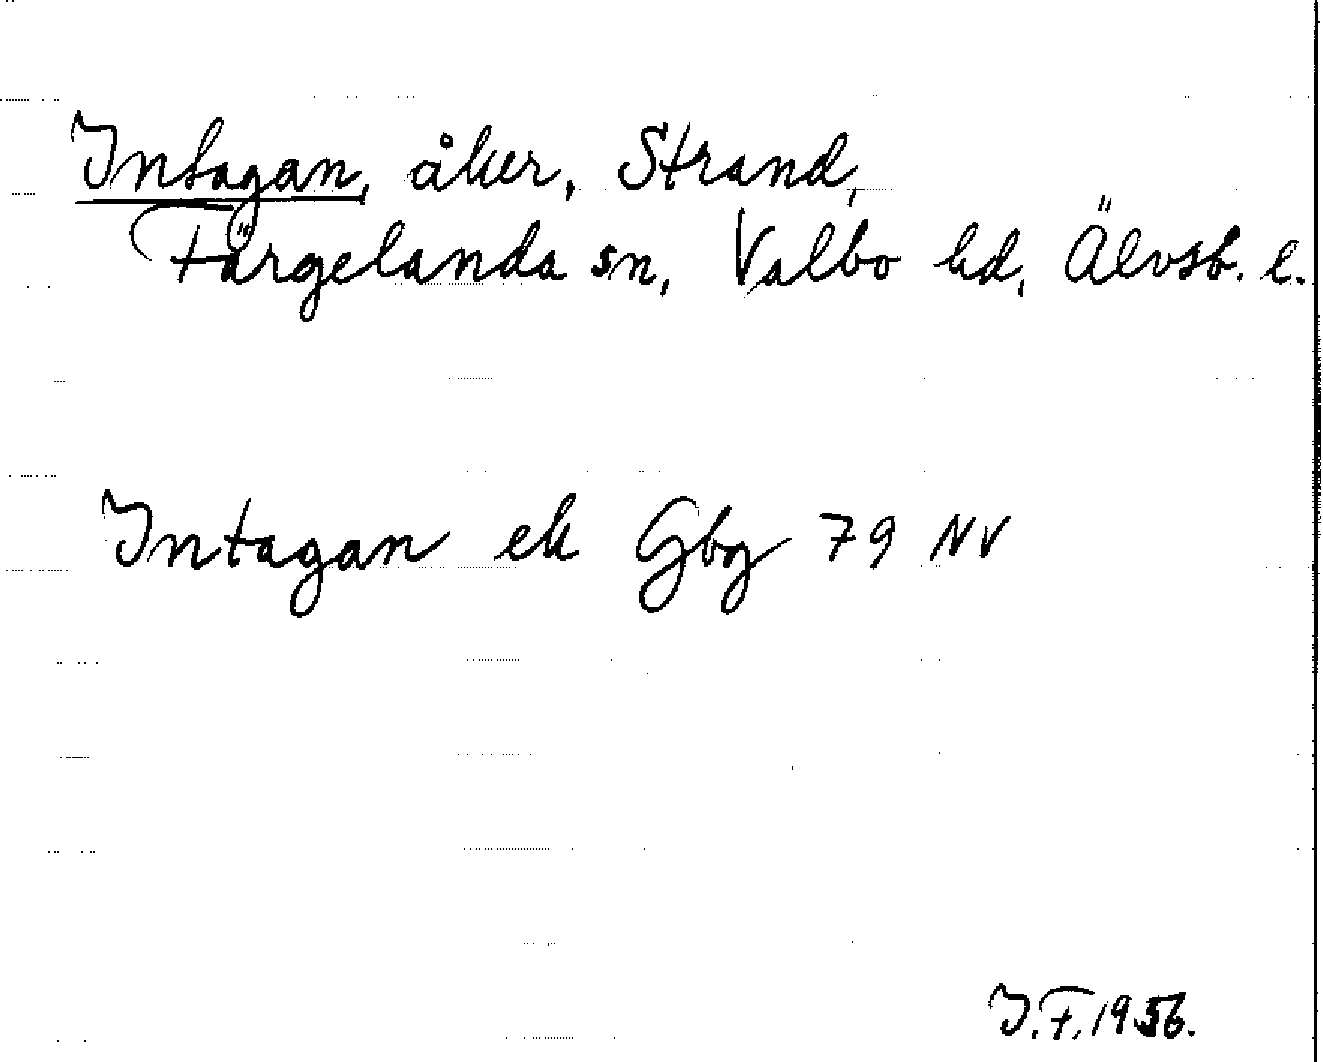 Intagan, åker, Strand,
Färgelanda sn, Valbo hd, Älvsb. l.
Intagan ek Gbg 79 NV
I.F. 1956.